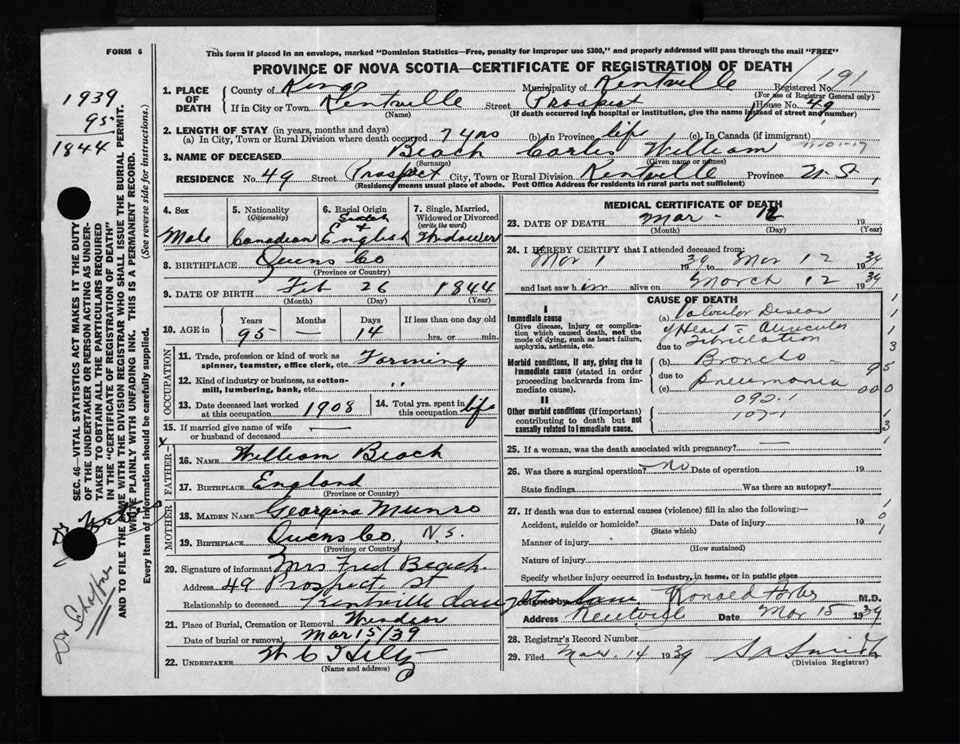 FORM 6
This form if placed in an envelope, marked "Dominion Statistics—Free, penalty for improper use $300," and properly addressed will pass through the mail "FREE"
PROVINCE OF NOVA SCOTIA—CERTIFICATE OF REGISTRATION OF DEATH
1939
95
1844
SEC. 46—VITAL STATISTICS ACT MAKES IT THE DUTY
OF THE UNDERTAKER OR PERSON ACTING AS UNDER-
TAKER TO OBTAIN ALL THE PARTICULARS REQUIRED
IN THE "CERTIFICATE OF REGISTRATION OF DEATH"
AND TO FILE THE SAME WITH THE DIVISION REGISTRAR WHO SHALL ISSUE THE BURIAL PERMIT.
WRITE PLAINLY WITH UNFADING INK. THIS IS A PERMANENT RECORD.
Every item of information should be carefully supplied. (See reverse side for instructions.)
1. PLACE OF DEATH County of Kings Municipality of Kentville Registered No. 191
(For use of Registrar General only)
If in City or Town Kentville Street Prospect House No. 49
(Name) (If death occurred in a hospital or institution, give the name instead of street and number)
2. LENGTH OF STAY (in years, months and days)
(a) In City, Town or Rural Division where death occurred 74 yrs (b) In Province life (c). In Canada (if immigrant)
3. NAME OF DECEASED Beach William
(Surname) (Given name or names)
RESIDENCE No. 49 Street Prospect City, Town or Rural Division Kentville Province N.S.
(Residence means usual place of abode. Post Office Address for residents in rural parts not sufficient)
4. Sex Male
5. Nationality (Citizenship) Canadian
6. Racial Origin + English
7. Single, Married, Widowed or Divorced (write the word) Widower
8. BIRTHPLACE Quens Co
(Province or Country)
9. DATE OF BIRTH Feb 26 1844
(Month) (Day) (Year)
10. AGE in Years Months Days If less than one day old
95 — 14 hrs. or min.
OCCUPATION
11. Trade, profession or kind of work as spinner, teamster, office clerk, etc. Farming
12. Kind of industry or business, as cotton-mill, lumbering, bank, etc. "
13. Date deceased last worked at this occupation 1908
14. Total yrs. spent in this occupation life
15. If married give name of wife or husband of deceased —
FATHER
16. NAME William Beach
17. BIRTHPLACE England
(Province or Country)
MOTHER
18. MAIDEN NAME Georgina Munro
19. BIRTHPLACE Quens Co, N.S.
(Province or Country)
20. Signature of informant Mrs Fred Beach
Address 49 Prospect St
Relationship to deceased Kentville
21. Place of Burial, Cremation or Removal Windsor
Date of burial or removal Mar 15/39
22. UNDERTAKER
(Name and address)
MEDICAL CERTIFICATE OF DEATH
23. DATE OF DEATH Mar - 12 19
(Month) (Day) (Year)
24. I HEREBY CERTIFY that I attended deceased from:
Mar 1 1939 to Mar 12 1939
and last saw him alive on March 12 1939
CAUSE OF DEATH
Immediate cause
Give disease, injury or complication which caused death, not the mode of dying, such as heart failure, asphyxia, asthenia, etc.
(a) Valvular Disease
of Heart - Auricular
due to Fibrillation
Morbid conditions, if any, giving rise to immediate cause (stated in order proceeding backwards from immediate cause).
(b) Broncho -
due to Pneumonia
(c)
II
Other morbid conditions (if important) contributing to death but not causally related to immediate cause.
092.1
107-1
25. If a woman, was the death associated with pregnancy? —
26. Was there a surgical operation? no Date of operation 19
State findings Was there an autopsy?
27. If death was due to external causes (violence) fill in also the following:—
Accident, suicide or homicide? Date of injury 19
(State which)
Manner of injury
(How sustained)
Nature of injury
Specify whether injury occurred in industry, in home, or in public place
Signed by Ronald M.D.
Address Date Mar 15 1939
28. Registrar's Record Number
29. Filed Mar 14 1939 Smith
(Division Registrar)